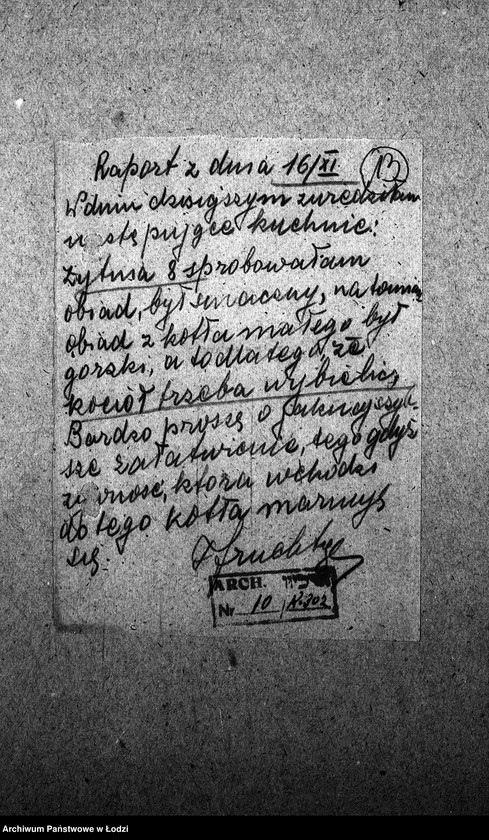 Raport z dnia 16/XI. 13
W dniu dzisiejszym zwiedziłam
następujące kuchnie:
Żytnia 8 spróbowałam
obiad, był smaczny, natomiast
obiad z kotła małego był
gorzki, a to dlatego, że
kocioł trzeba wybielić
Bardzo proszę o jaknajszyb-
sze załatwienie, tego gdyż
żywność, która wchodzi
do tego kotła marnuje
się.
ARCH.
Nr. 10